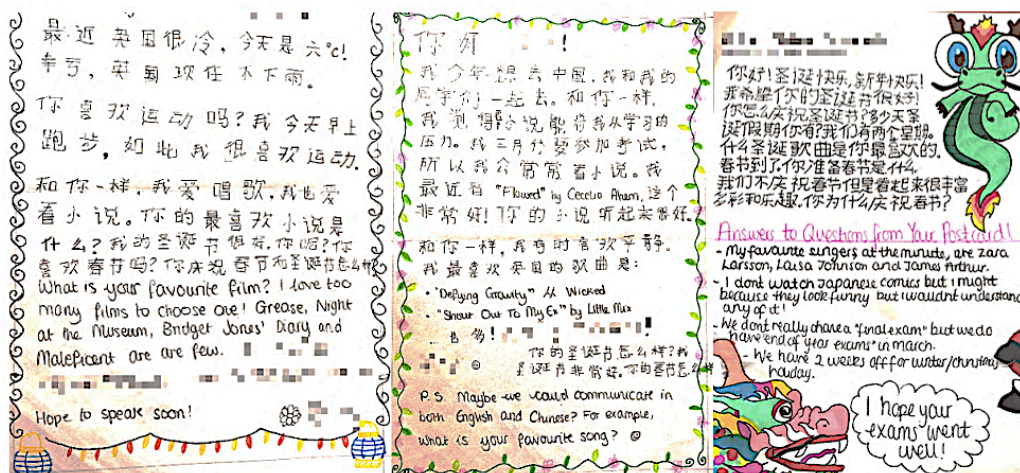 最近英国很冷,今天是六°c!
幸亏,英国现在不下雨。
你喜欢运动吗?我今天早上
跑步,如此我很喜欢运动.
和你一样,我爱唱歌,我也爱
看小说。你的最喜欢小说是
什么?我的圣诞节很好,你呢?你
喜欢春节吗?你庆祝春节和圣诞节怎么样
What is your favourite film? I love too
many films to choose one! Grease, Night
at the Museum, Bridget Jones' Diary and
Maleficent are are few.
Hope to speak soon!
你好 !
我今年想去中国,我和我的
同学们一起去。和你一样,
我觉得小说能将我从学习的
压力。我三月份要参加考试,
所以我公常常看小说。我
最近看 "Flawed" by Cecelia Ahern, 这个
非常好!你的小说听起来很好.
和你一样,我有时喜欢平静.
我最喜欢英国的歌曲是:
• "Defying Gravity" Wicked
• "Shout Out To My Ex" by Little Mix
你的圣诞节怎么样?我
圣诞节非常好.你的春节怎么样
P.S. Maybe we could communicate in
both English and Chinese? For example,
what is your favourite song?
你好!圣诞快乐,新年快乐!
我希望你的圣诞节很好!
你怎么庆祝圣诞节?多少天圣
诞假期你有?我们有两个星期.
什么圣诞歌曲是你最喜欢的.
春节到了.你准备春节是什么.
我们不庆祝春节但是看起来很丰富
多彩和乐趣.你为什么庆祝春节?
Answers to Questions from Your Postcard!
- My favourite singers at the minute, are Zara
Larsson, Louisa Johnson and James Arthur.
- I dont watch Japanese comics but i might
because they look funny but i wouldnt understand
any of it!
- We dont really have a "final exam" but we do
have end of year exams in march.
- We have 2 weeks off for winter/christmas
holiday.
I hope your
exams went
well!